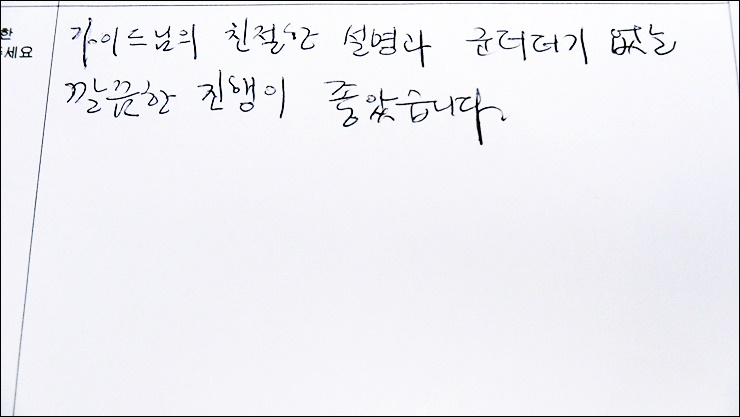 한
세요
가이드님의 친절한 설명과 군더더기 없는
깔끔한 진행이 좋았습니다.